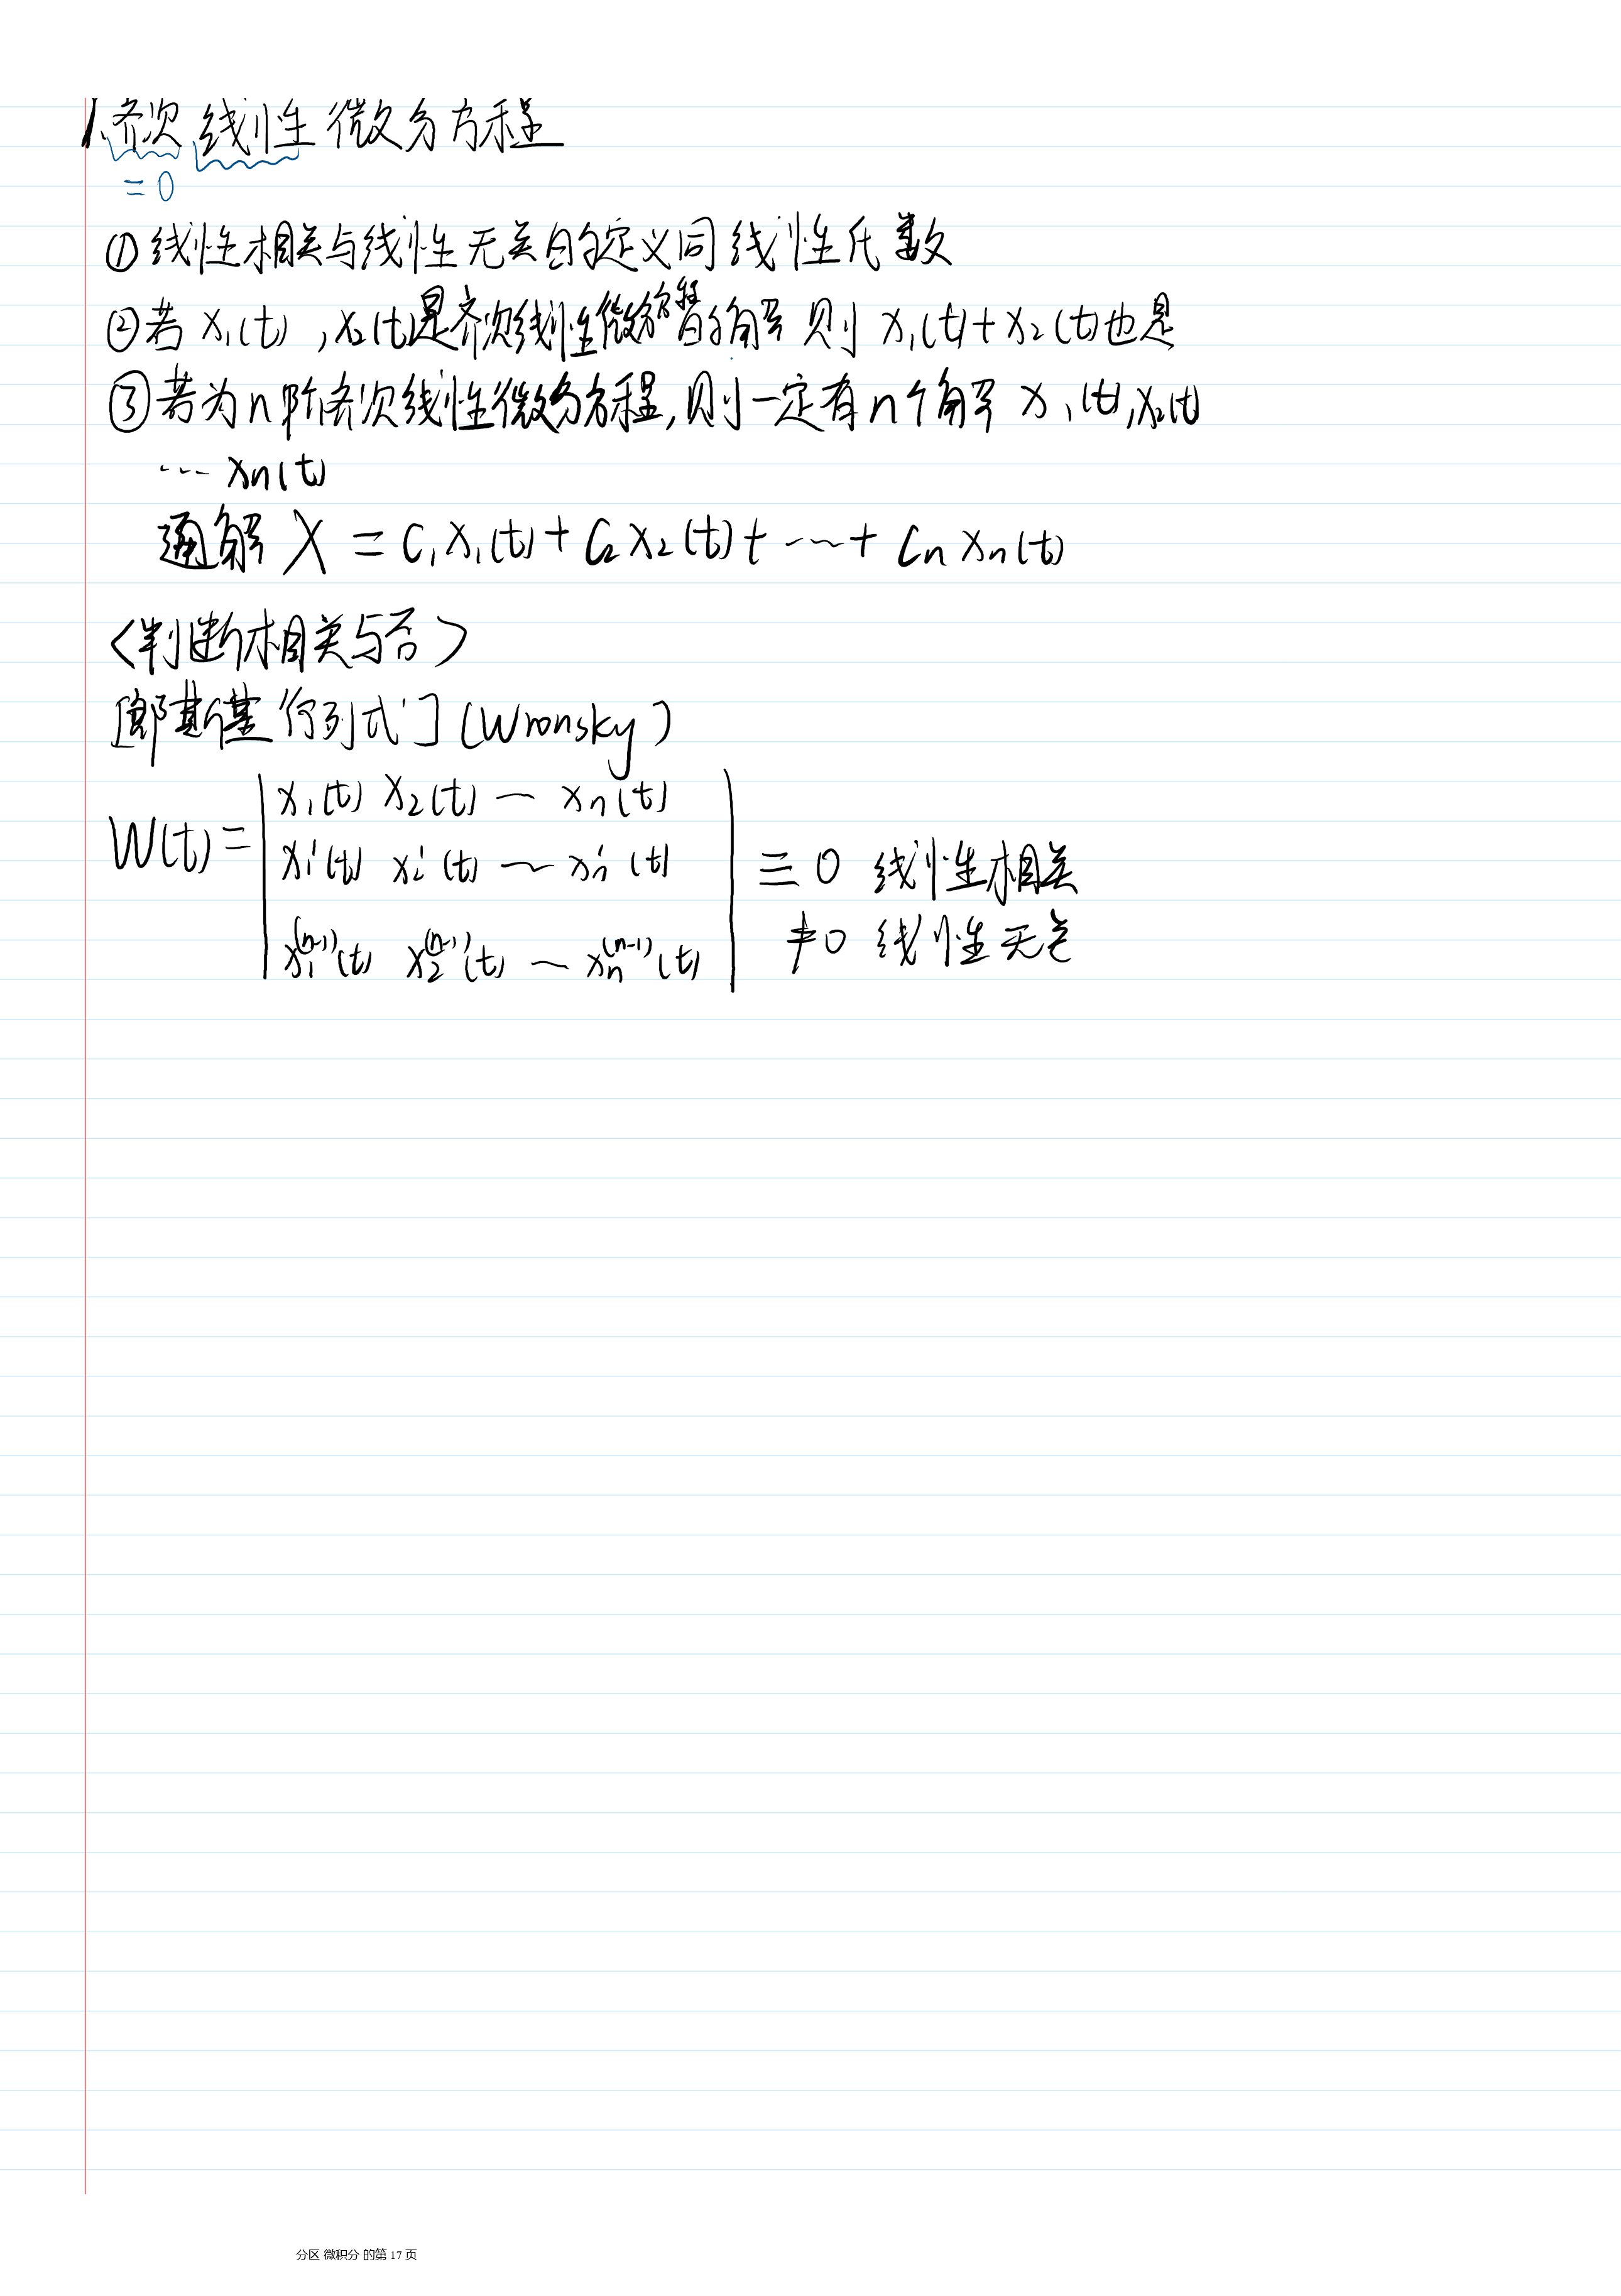 1.齐次线性微分方程
=0
①线性相关与线性无关的定义同线性代数
②若 x₁(t),x₂(t)是齐次线性微分方程的解 则 x₁(t)+x₂(t)也是
③若为n阶齐次线性微分方程,则一定有n个解 x₁(t),x₂(t)
… xₙ(t)
通解 X = C₁x₁(t)+C₂x₂(t)+…+Cₙxₙ(t)
<判断相关与否>
[郎斯基行列式](Wronsky)
W(t)= | x₁(t) x₂(t) … xₙ(t) |
| x₁'(t) x₂'(t) … xₙ'(t) | ≡0 线性相关
| x₁⁽ⁿ⁻¹⁾(t) x₂⁽ⁿ⁻¹⁾(t) … xₙ⁽ⁿ⁻¹⁾(t) | ≠0 线性无关
分区 微积分 的第 17 页